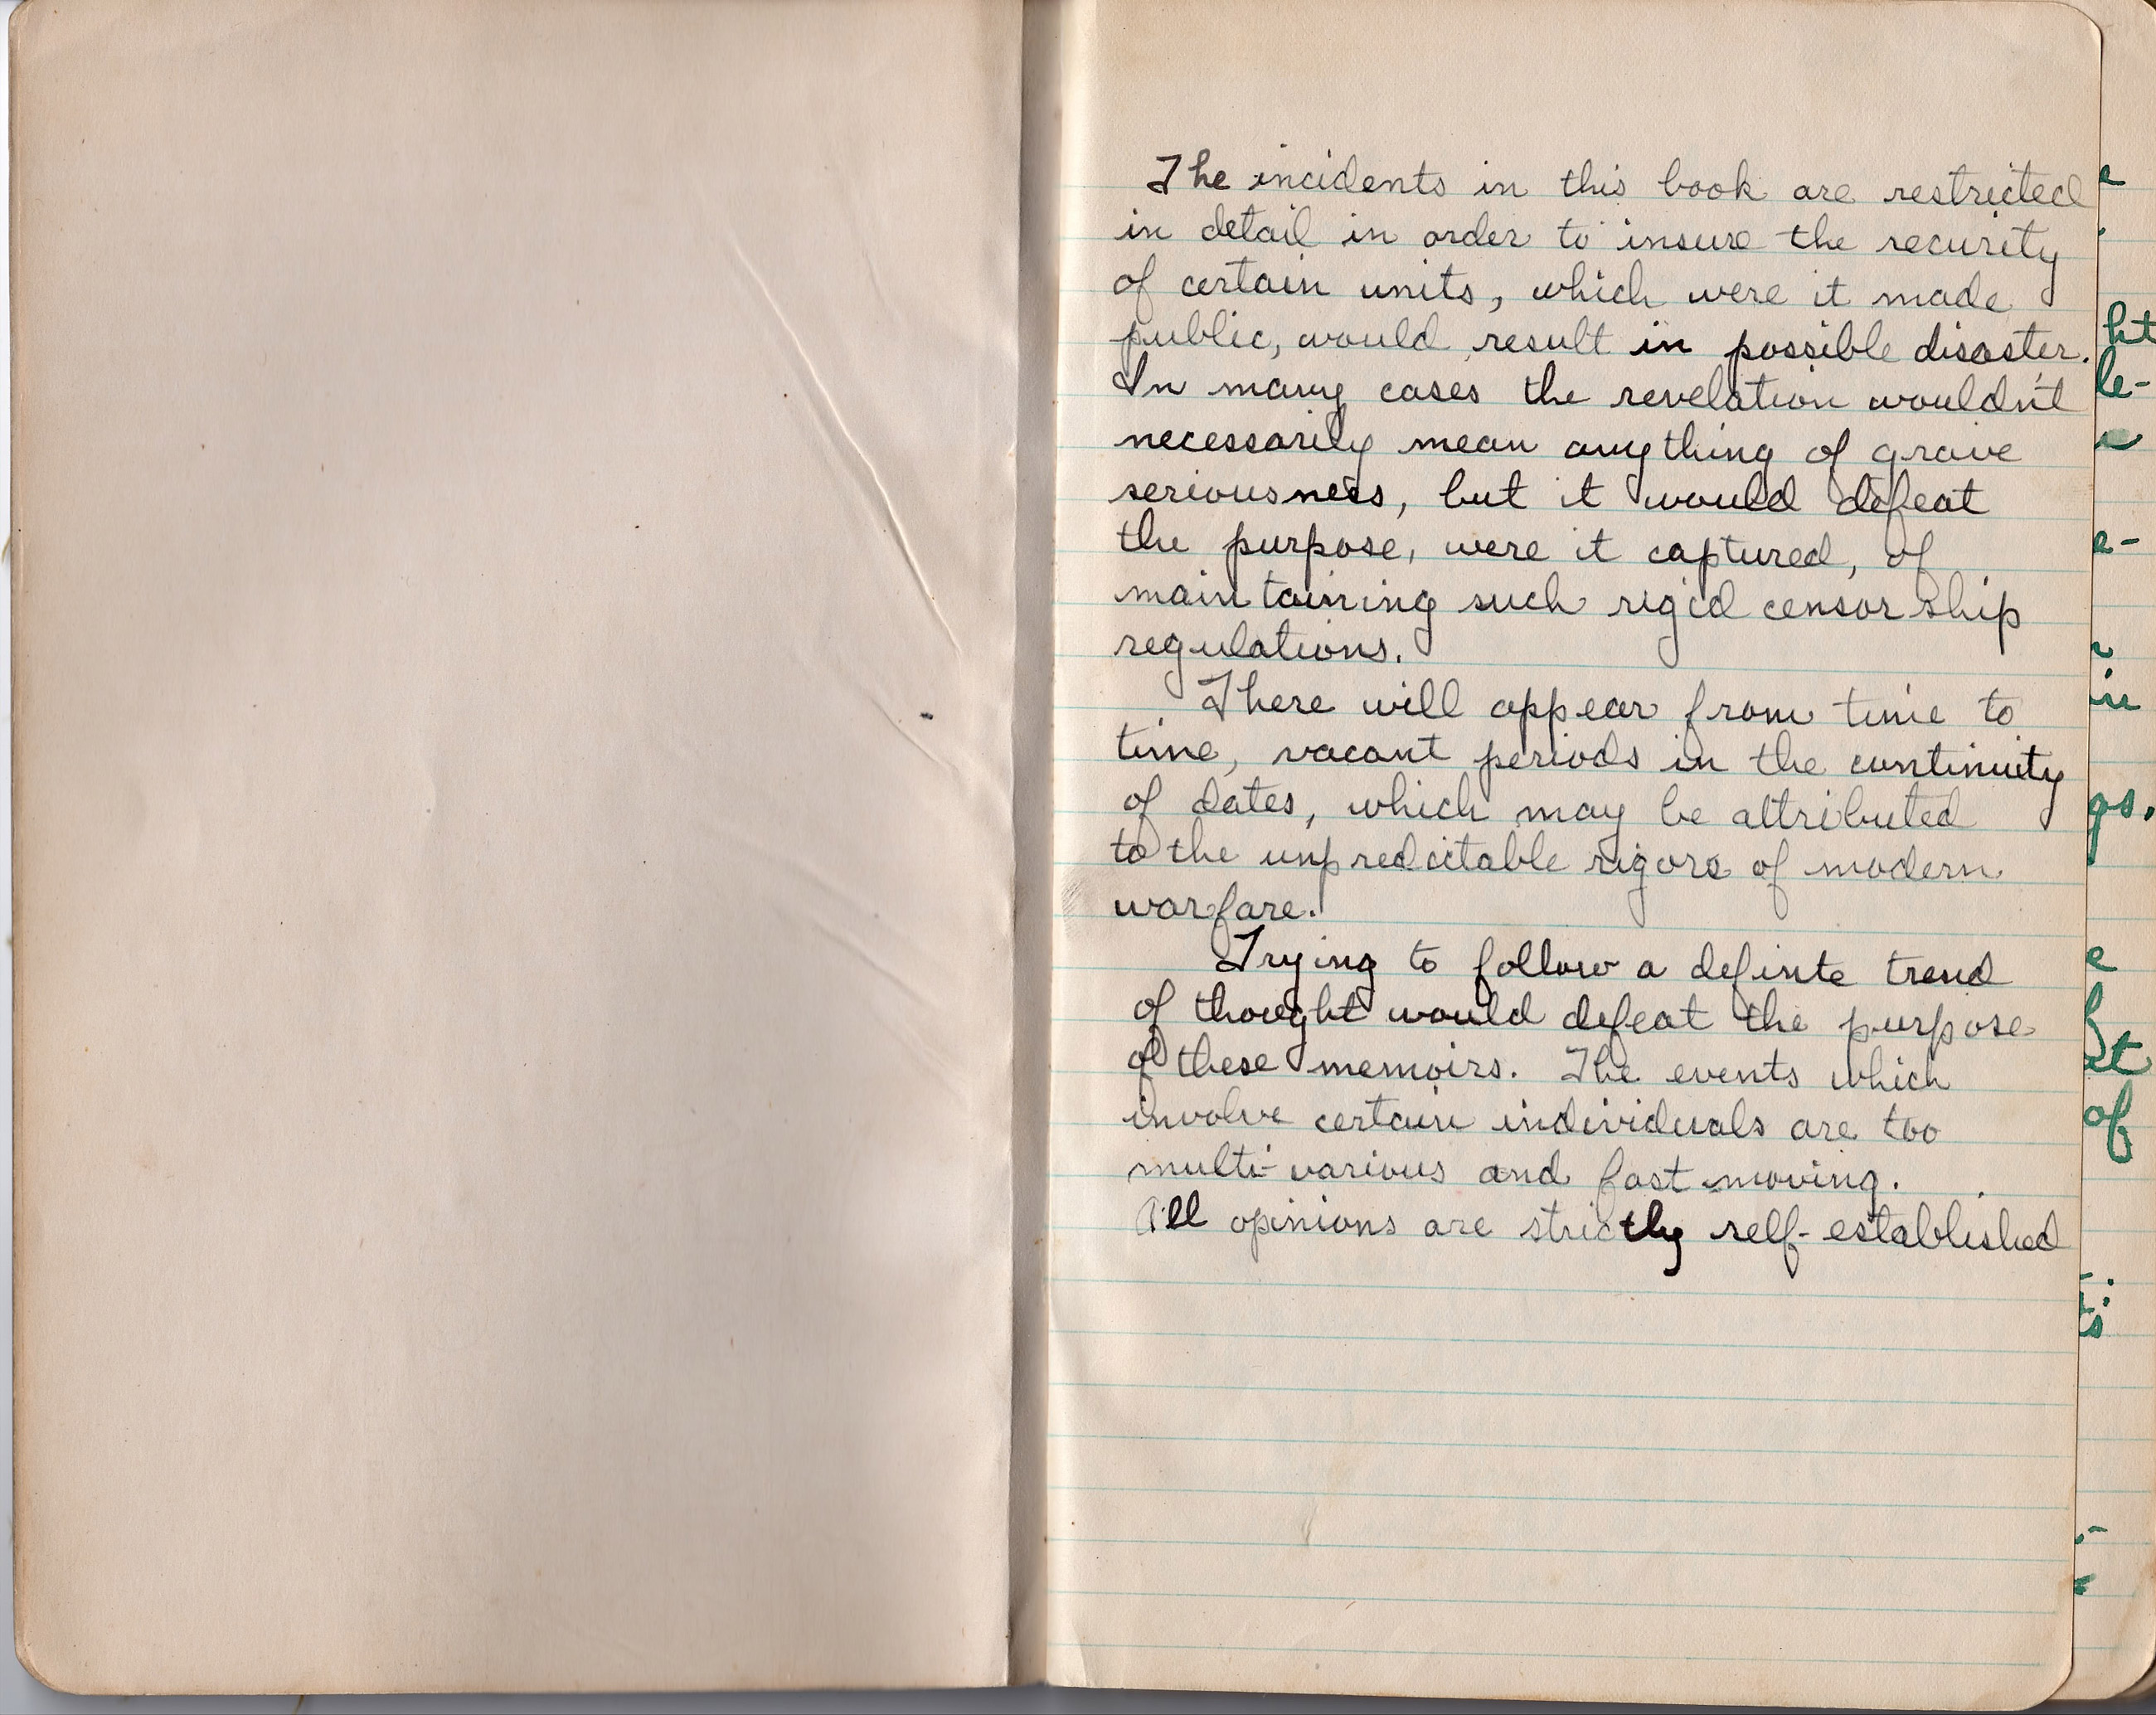 The incidents in this book are restricted
in detail in order to insure the security
of certain units, which were it made
public, would result in possible disaster.
In many cases the revelation wouldn't
necessarily mean anything of grave
seriousness, but it would defeat
the purpose, were it captured, of
maintaining such rigid censorship
regulations.
There will appear from time to
time, vacant periods in the continuity
of dates, which may be attributed
to the unpredictable rigors of modern
warfare.
Trying to follow a definte trend
of thought would defeat the purpose
of these memoirs. The events which
involve certain individuals are too
multi-various and fast moving.
All opinions are strictly self-established
of